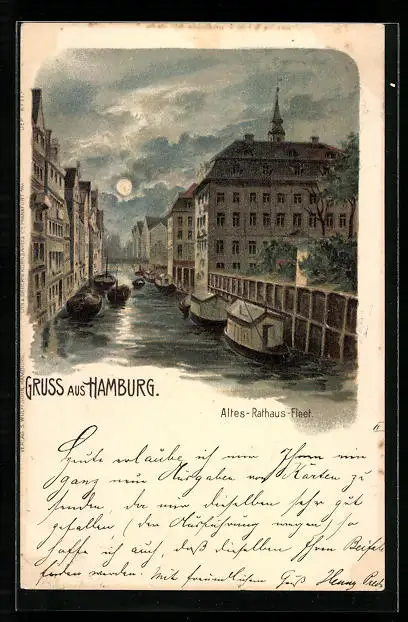 GRUSS AUS HAMBURG.
Altes-Rathaus-Fleet.
Heute erlaube ich mir Ihnen eine
ganz neue Ausgaben von Karten zu
senden, da mir dieselben sehr gut
gefallen, der Ausführung wegen, so
hoffe ich auch, daß dieselben Ihren Beifall
finden werden. Mit freundlichem Gruß Henny